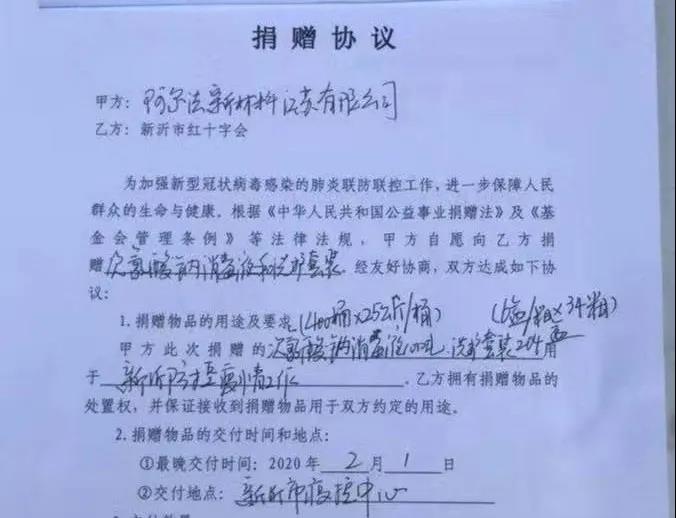 捐赠协议
甲方：阿尔法新材料江苏有限公司
乙方：新沂市红十字会
为加强新型冠状病毒感染的肺炎联防联控工作，进一步保障人民
群众的生命与健康。根据《中华人民共和国公益事业捐赠法》及《基
金会管理条例》等法律法规，甲方自愿向乙方捐
赠次氯酸钠消毒液和洗护套装。经友好协商，双方达成如下协
议：
1.捐赠物品的用途及要求 (400桶×25公斤/桶) (6盒/箱×34箱)
甲方此次捐赠的次氯酸钠消毒液 洗护套装204盒用
于新沂防控疫情工作。乙方拥有捐赠物品的
处置权，并保证接收到捐赠物品用于双方约定的用途。
2.捐赠物品的交付时间和地点：
①最晚交付时间：2020年2月1日
②交付地点：新沂市疾控中心